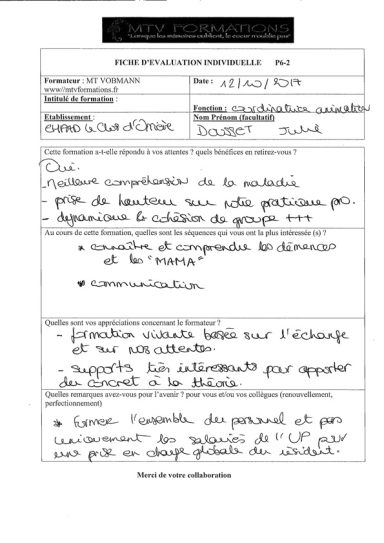 MTV FORMATIONS
"Lorsque les mémoires oublient, le coeur n'oublie pas"
FICHE D'EVALUATION INDIVIDUELLE P6-2
Formateur : MT VOBMANN
www//mtvformations.fr
Date : 12/10/2017
Intitulé de formation :
Fonction : coordinatrice animation
Etablissement :
EHPAD le Clos d'
Nom Prénom (facultatif)
Dousset Julie
Cette formation a-t-elle répondu à vos attentes ? quels bénéfices en retirez-vous ?
Oui.
- Meilleure compréhension de la maladie
- prise de hauteur sur notre pratique pro.
- dynamique la cohésion de groupe +++
Au cours de cette formation, quelles sont les séquences qui vous ont la plus intéressée (s) ?
* connaître et comprendre les démences
et les "MAMA"
* communication
Quelles sont vos appréciations concernant le formateur ?
- formation vivante basée sur l'échange
et sur nos attentes.
- supports très intéressants par apporter
du concret à la théorie.
Quelles remarques avez-vous pour l'avenir ? pour vous et/ou vos collègues (renouvellement,
perfectionnement)
* Former l'ensemble du personnel et pas
uniquement les salariés de l'UP par
une prise en charge globale du résident.
Merci de votre collaboration